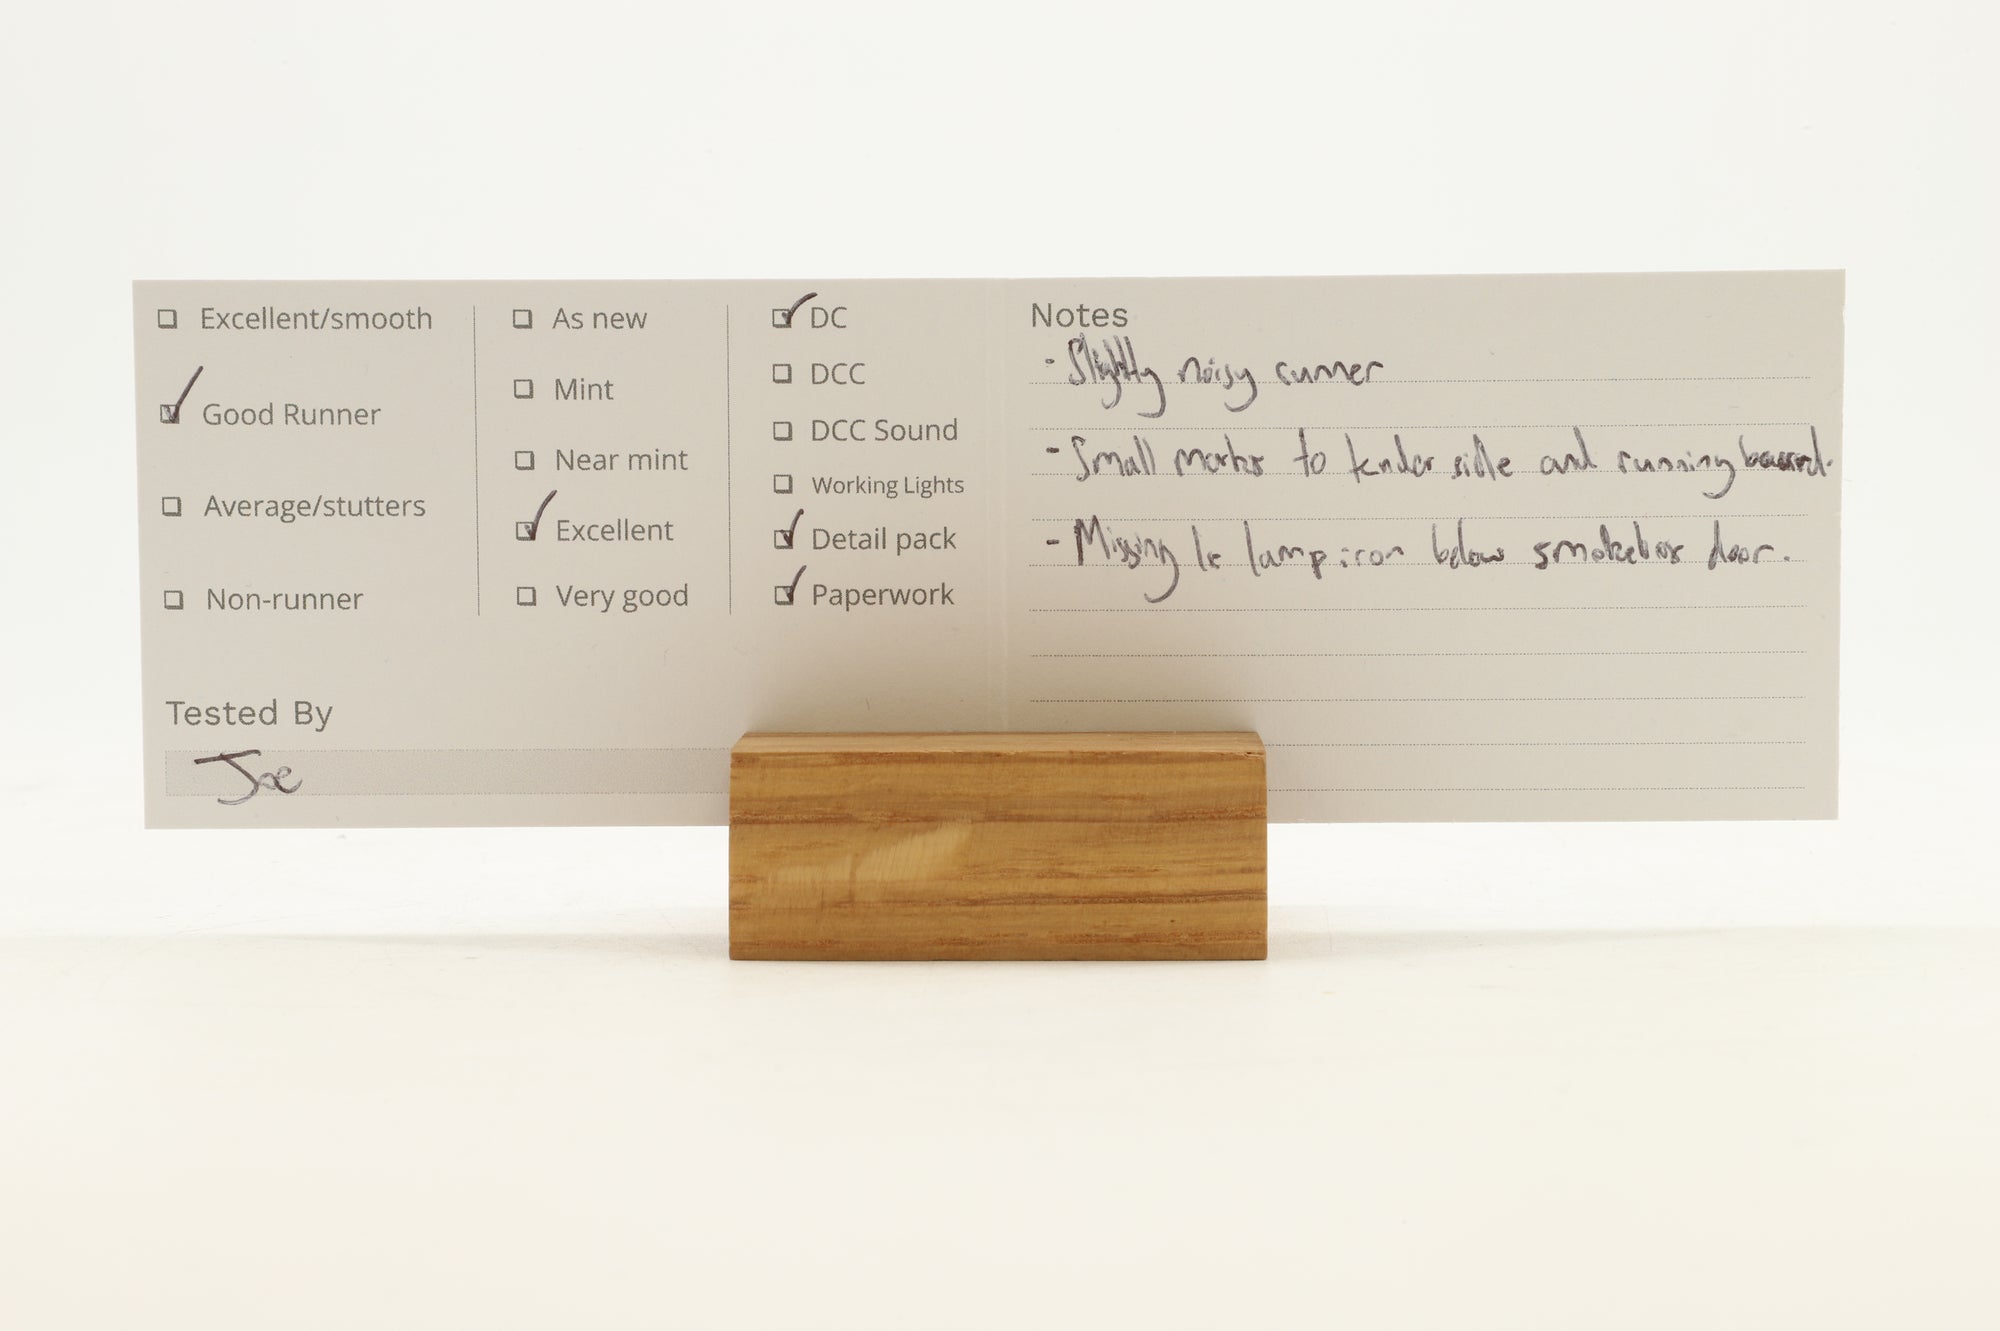 Excellent/smooth
Good Runner
Average/stutters
Non-runner
As new
Mint
Near mint
Excellent
Very good
DC
DCC
DCC Sound
Working Lights
Detail pack
Paperwork
Tested By
Joe
Notes
- Slightly noisy runner
- Small marks to tender side and running board.
- Missing 1x lamp iron below smokebox door.